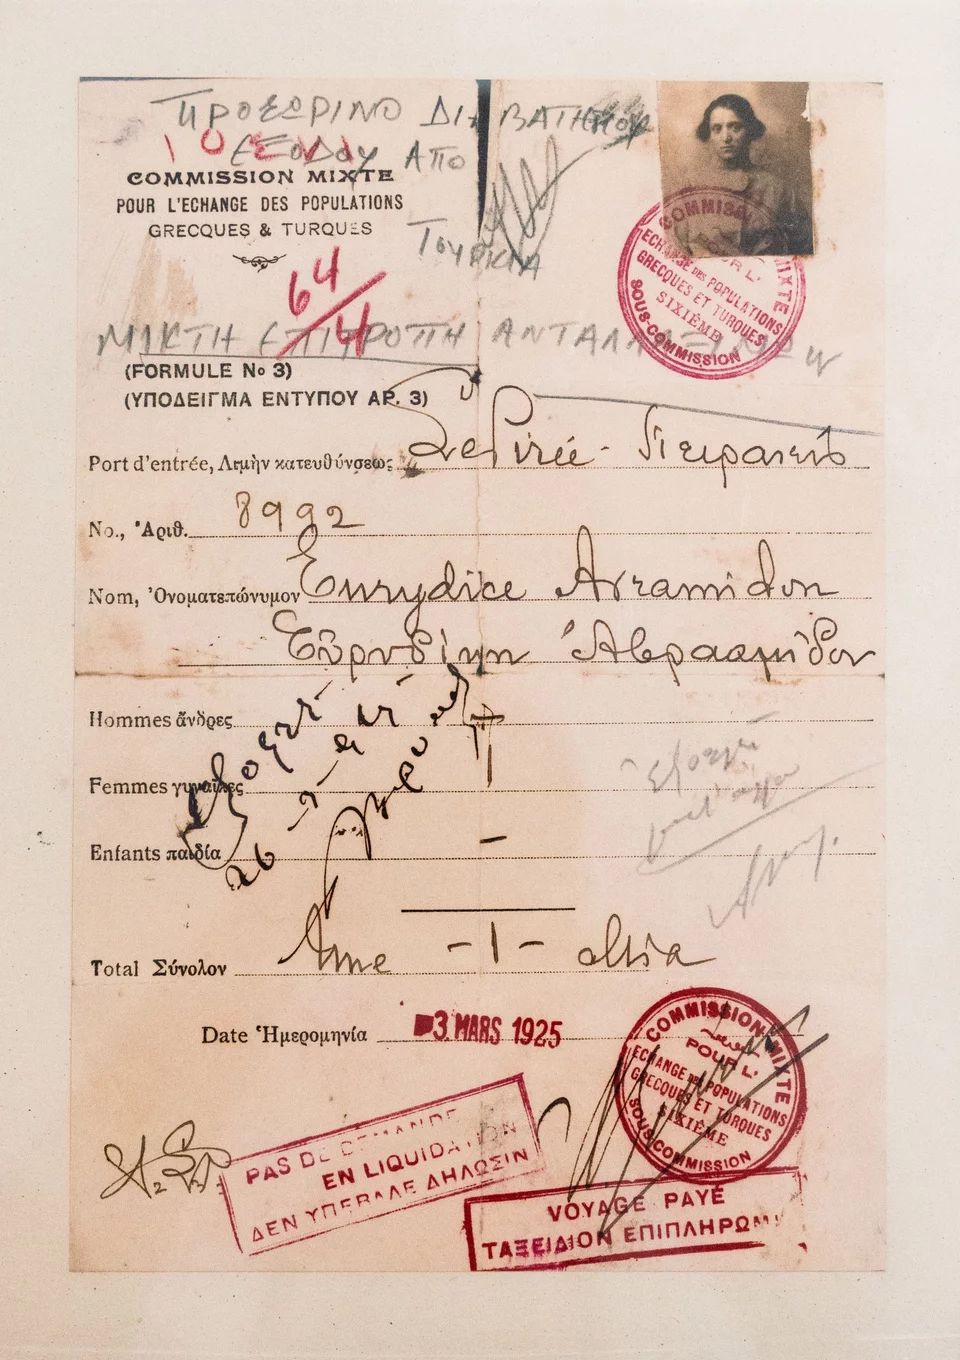 ΠΡΟΣΩΡΙΝΟ ΔΙΑΒΑΤΗΡΙΟΥ
ΕΞΟΔΟΥ ΑΠΟ
ΤΟΥΡΚΙΑ
COMMISSION MIXTE
POUR L'ECHANGE DES POPULATIONS
GRECQUES & TURQUES
64/4
ΜΙΚΤΗ ΕΠΙΤΡΟΠΗ ΑΝΤΑΛΛΑΞΙΜΩΝ
COMMISSION MIXTE
POUR L'
ECHANGE DES POPULATIONS
GRECQUES ET TURQUES
SIXIÈME
SOUS-COMMISSION
(FORMULE No 3)
(ΥΠΟΔΕΙΓΜΑ ΕΝΤΥΠΟΥ ΑΡ. 3)
Port d'entrée, Λιμὴν κατευθύνσεως Le Pirée - Πειραιεύς
No., Ἀριθ. 8992
Nom, Ὀνοματεπώνυμον Eurydice Avramidou
Εὐρυδίκη Ἀβρααμίδου
Hommes ἄνδρες
Femmes γυναῖκες 1
Enfants παιδία -
Total Σύνολον Une - 1 - μία
Date Ἡμερομηνία 3 MARS 1925
COMMISSION MIXTE
POUR L'
ECHANGE DES POPULATIONS
GRECQUES ET TURQUES
SIXIÈME
SOUS-COMMISSION
PAS DE DEMANDE
EN LIQUIDATION
ΔΕΝ ΥΠΕΒΑΛΕ ΔΗΛΩΣΙΝ
VOYAGE PAYÉ
ΤΑΞΕΙΔΙΟΝ ΕΠΙΠΛΗΡΩΜΗ